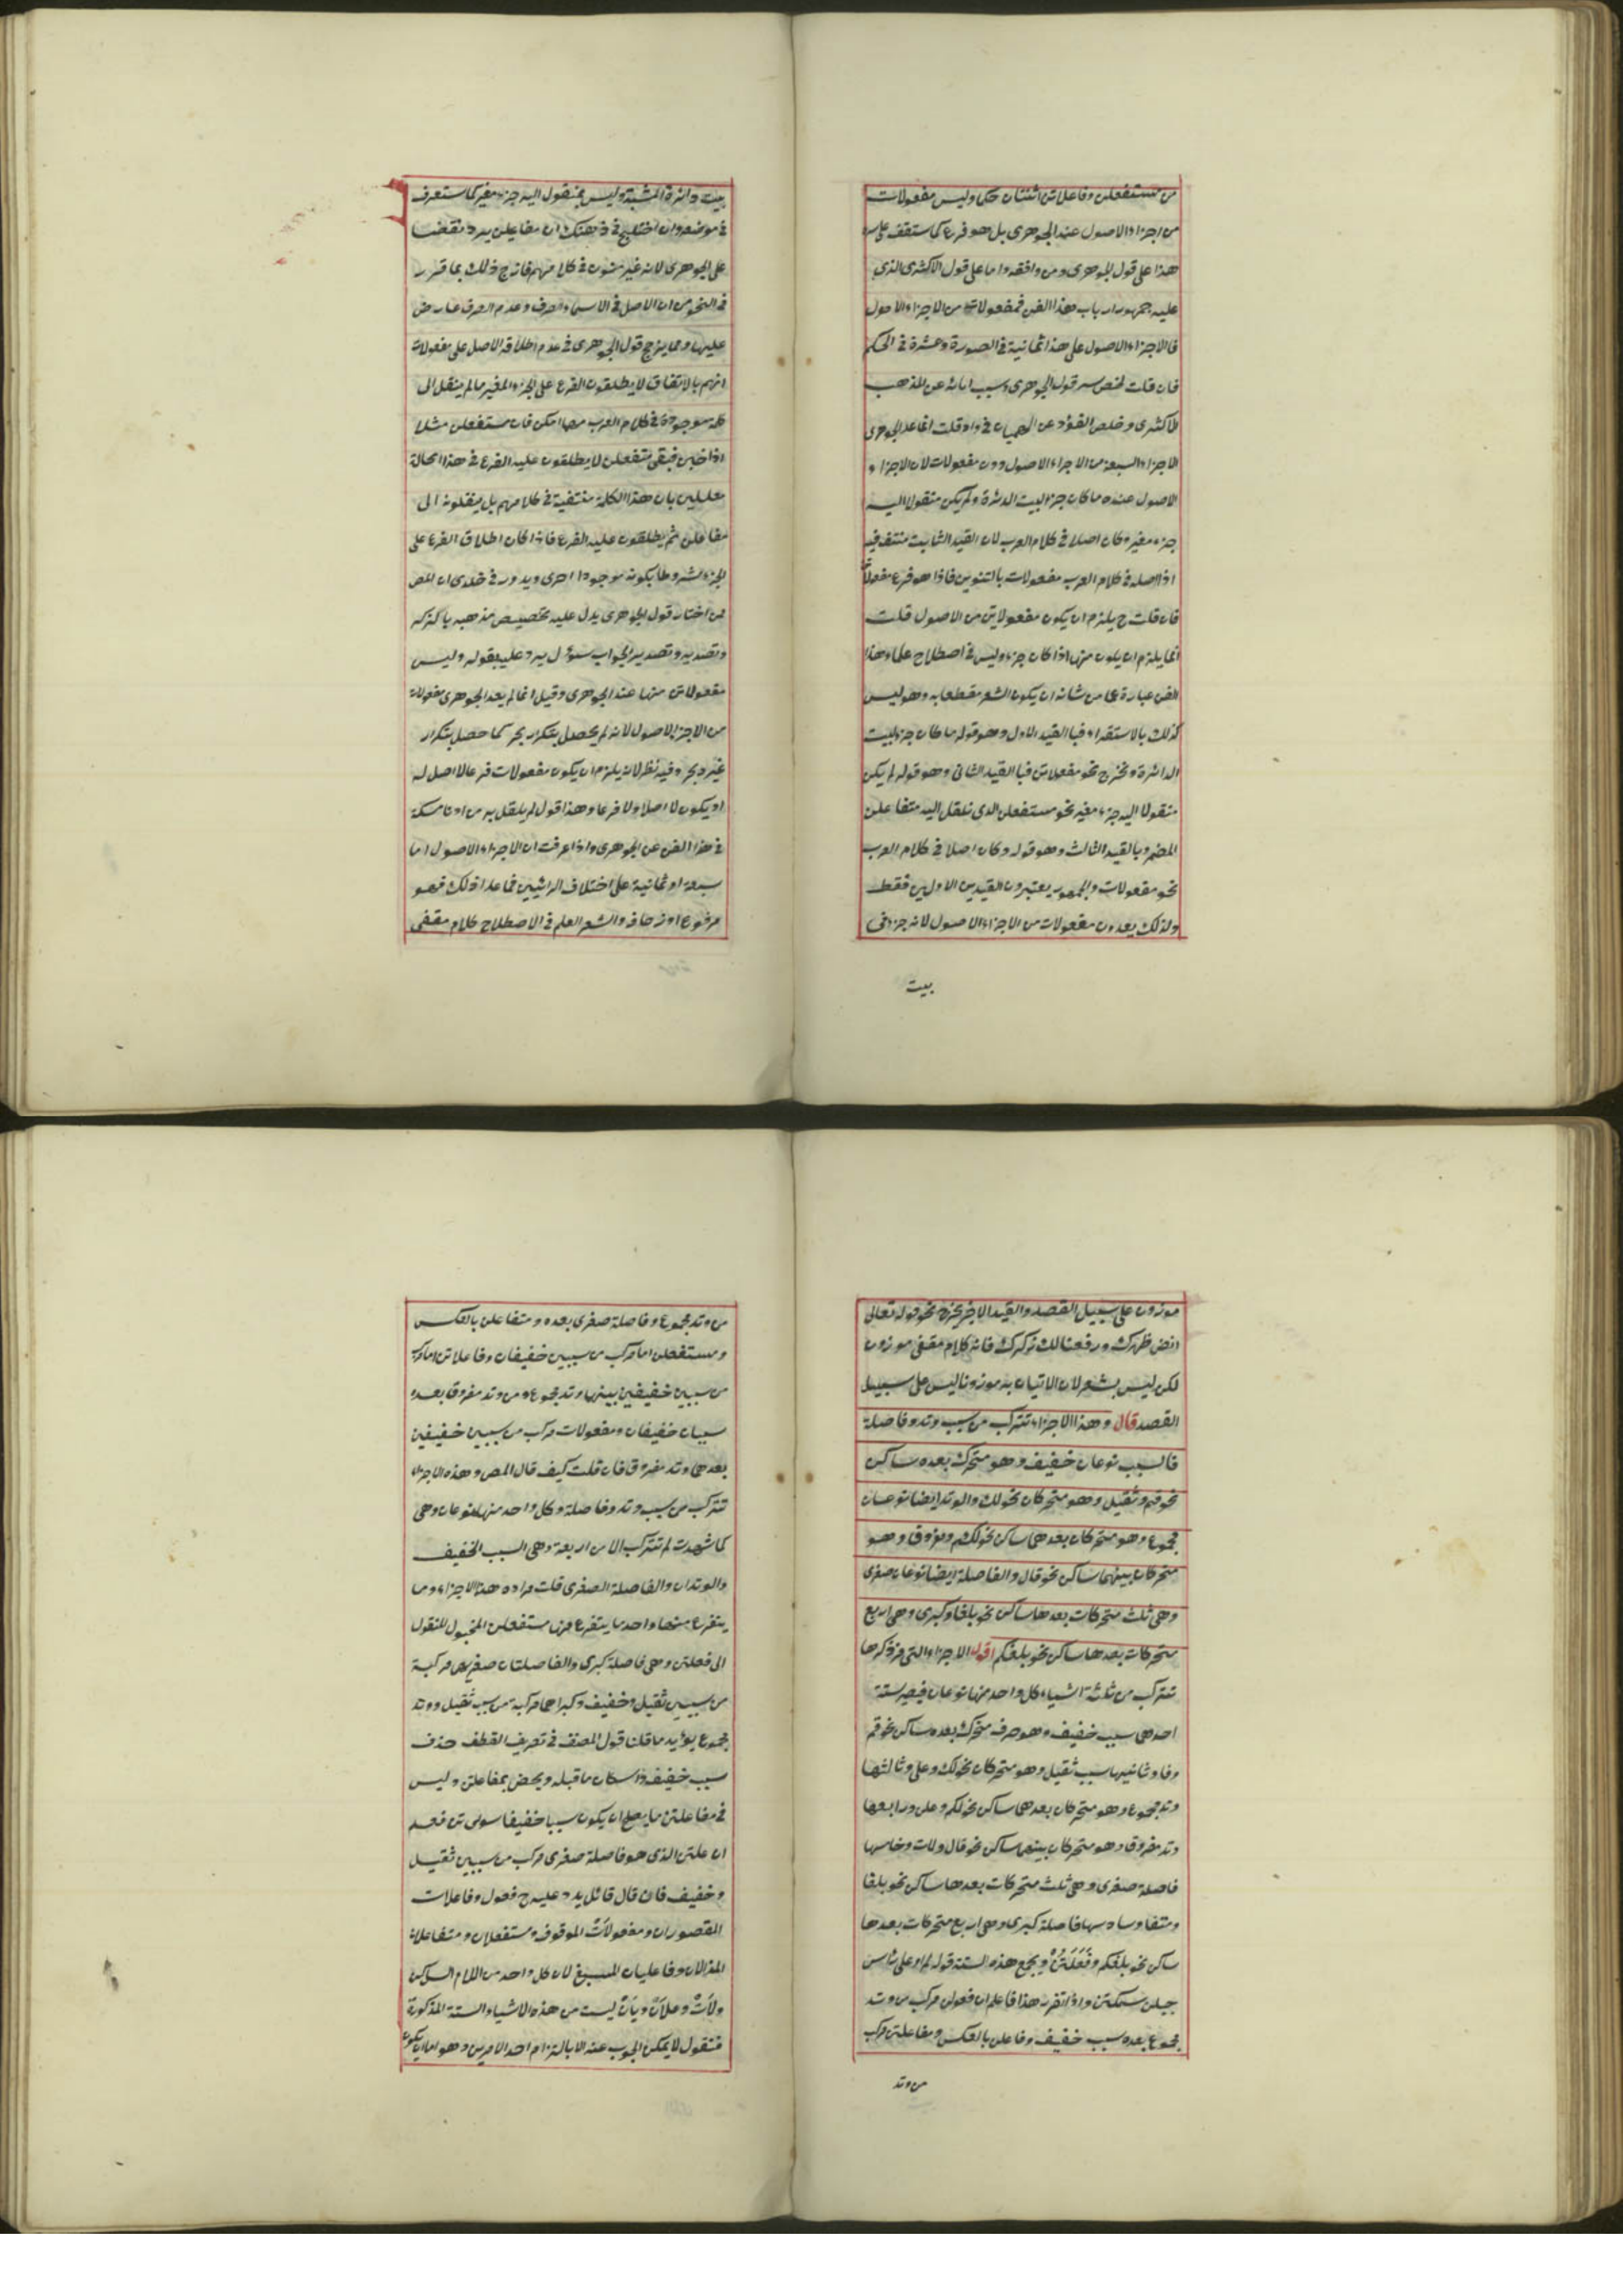 من مستفعلن وفاعلاتن اثنتان حكما وليس مفعولات
من اجزاء الاصول عند الجوهرى بل هو فرع كما ستقف عليه
هذا على قول الجوهرى ومن وافقه واما على قول الاكثرى الذى
عليه جمهور ارباب هذا الفن فمفعولات من الاجزاء الاصول
فالاجزاء الاصول على هذا ثمانية فى الصورة وعشرة فى الحكم
فان قلت لخص سر قول الجوهرى وسبب ابائه عن المذهب
الاكثرى وخلص الفؤاد عن فى واد قلت انما عد الجوهرى
الاجزاء السبعة من الاجزاء الاصول دون مفعولات لان الاجزاء
الاصول عنده ما كان جزء البيت الدائرة ولم يكن منقولا اليه
جزء مغير وكان اصلا فى كلام العرب لان القيد الثالث منتف فيه
اذ اصله فى كلام العرب مفعولات بالتنوين فاذا هو فرع مفعولاتٌ
فان قلت ح يلزم ان يكون مفعولاتن من الاصول قلت
انما يلزم ان يكون منها اذا كان جزء وليس فى اصطلاح علماء هذا
الفن عبارة عما من شانه ان يكون الشعر مقطعا به وهو ليس
كذلك بالاستقراء فبا القيد الاول وهو قوله ما كان جزء لبيت
الدائرة ونخرج نحو مفعلاتن فبا القيد الثانى وهو قوله لم يكن
منقولا اليه جزء مغير نحو مستفعلن الذى ينتقل اليه متفاعلن
المضمر وبالقيد الثالث وهو قوله وكان اصلا فى كلام العرب
نحو مفعولات والجمهور يعتبرون القيدين الاولين فقط
ولذلك يعدون مفعولات من الاجزاء الاصول لانه جزء فى
بيت
بيت دائرة المشتبه وليس بمنقول اليه جزء مغير كما ستعرف
فى موضعه وان اختلج فى ذهنك ان مفاعيلن يرد نقضا
على الجوهرى لانه غير منون فى كلامهم فازح ذلك بما قرر
فى النحو من ان الاصل فى الاسماء الصرف وعدم الصرف عارض
عليها ومما يرجح قول الجوهرى فى عدم اطلاقه الاصل على مفعولات
انهم بالاتفاق لا يطلقون الفرع على الجزء المغير ما لم ينقل الى
كلمة موجودة فى كلام العرب مهما امكن فان مستفعلن مثلا
اذا خبن فبقى متفعلن لا يطلقون عليه الفرع فى هذا الحالة
معللين بان هذا الكلمة منتفية فى كلامهم بل ينقلونه الى
مفاعلن ثم يطلقون عليه الفرع فاذا كان اطلاق الفرع على
الجزء مشروطا بكونه موجودا احرى ويدور فى خلدى ان المص
ممن اختار قول الجوهرى يدل عليه تخصيص مذهبه بالذكر
وتصديره وتصدير الجواب سؤال يرد عليه بقوله وليس
مفعولاتن منها عند الجوهرى وقيل انما لم يعد الجوهرى مفعولات
من الاجزاء الاصول لانه لم يحصل بتكراره بحر كما حصل بتكرار
غيره بحر وفيه نظر لانه يلزم ان يكون مفعولات فرعا لا اصل له
او يكون لا اصلا ولا فرعا وهذا قول لم ينقل به من له ادنى مسكة
فى هذا الفن عن الجوهرى واذا عرفت ان الاجزاء الاصول اما
سبعة او ثمانية على اختلاف الرائيين فما عدا ذلك فهو
مرفوع او زحاف والشعر العلم فى الاصطلاح كلام مقفى
موزون على سبيل القصد والقيد الاخير يخرج نحو قوله تعالى
انقض ظهرك ورفعنا لك ذكرك فانه كلام مقفى موزون
لكن ليس بشعر لان الاتيان به موزونا ليس على سبيل
القصد قال وهذا الاجزاء تتركب من سبب ووتد وفاصلة
فالسبب نوعان خفيف وهو متحرك بعده ساكن
نحو قم وثقيل وهو متحركان نحو لك والوتد ايضا نوعان
مجموع وهو متحركان بعدهما ساكن نحو لكم ومفروق وهو
متحركان بينهما ساكن نحو قال والفاصلة ايضا نوعان صغرى
وهى ثلث متحركات بعدها ساكن نحو بلغا وكبرى وهى اربع
متحركات بعدها ساكن نحو بلغكم اقول الاجزاء التى مر ذكرها
تتركب من ثلثة اشياء كل واحد منها نوعان فيصير ستة
احدهما سبب خفيف وهو حرف متحرك بعده ساكن نحو قم
وفا وثانيها سبب ثقيل وهو متحركان نحو لك وعلى وثالثها
وتد مجموع وهو متحركان بعدهما ساكن نحو لكم وعلن ورابعها
وتد مفروق وهو متحركان بينهما ساكن نحو قال ولات وخامسها
فاصلة صغرى وهى ثلث متحركات بعدها ساكن نحو بلغا
ومتفا وسادسها فاصلة كبرى وهى اربع متحركات بعدها
ساكن نحو بلغكم وفَعَلَتُنْ ويجمع هذه الستة قوله لم ار على راس
جبلن سمكتن واذا تقرر هذا فاعلم ان فعولن مركب من وتد
مجموع بعده سبب خفيف وفاعلن بالعكس ومفاعلتن مركب
من وتد
من وتد مجموع وفاصلة صغرى بعده ومتفاعلن بالعكس
ومستفعلن اما مركب من سببين خفيفان وفاعلاتن اما مركب
من سببين خفيفين بينهما وتد مجموع ومن وتد مفروق بعده
سببان خفيفان ومفعولات مركب من سببين خفيفين
بعدهما وتد مفروق فان قلت كيف قال المص وهذه الاجزاء
تتركب من سبب ووتد وفاصلة وكل واحد منها نوعان وهى
كما شهدت لم تتركب الا من اربعة وهى السبب الخفيف
والوتدان والفاصلة الصغرى قلت مراده هذا الاجزاء وما
يتفرع منها واحد ما يتفرع من مستفعلن المخبول المنقول
الى فعلتن وهى فاصلة كبرى والفاصلتان صغريهما مركبة
من سببين ثقيل وخفيف وكبراهما مركبة من سبب ثقيل ووتد
مجموع يؤيد ما قلنا قول المصنف فى تعريف القطف حذف
سبب خفيف واسكان ما قبله ويختص بمفاعلتن وليس
فى مفاعلتن ما يصلح ان يكون سببا خفيفا سوى تن فعلم
ان علتن الذى هو فاصلة صغرى مركب من سببين ثقيل
وخفيف فان قال قائل يرد عليه ح فعول وفاعلات
المقصوران ومفعولاتْ الموقوف ومستفعلان ومتفاعلان
المذالان وفاعليان المسبغ لان كل واحد من اللام الساكن
ولاتْ وعلانْ ويانْ ليست من هذه الاشياء الستة المذكورة
فنقول لا يمكن الجوب عنه الا بالتزام احد الامرين وهو اما ان يكون